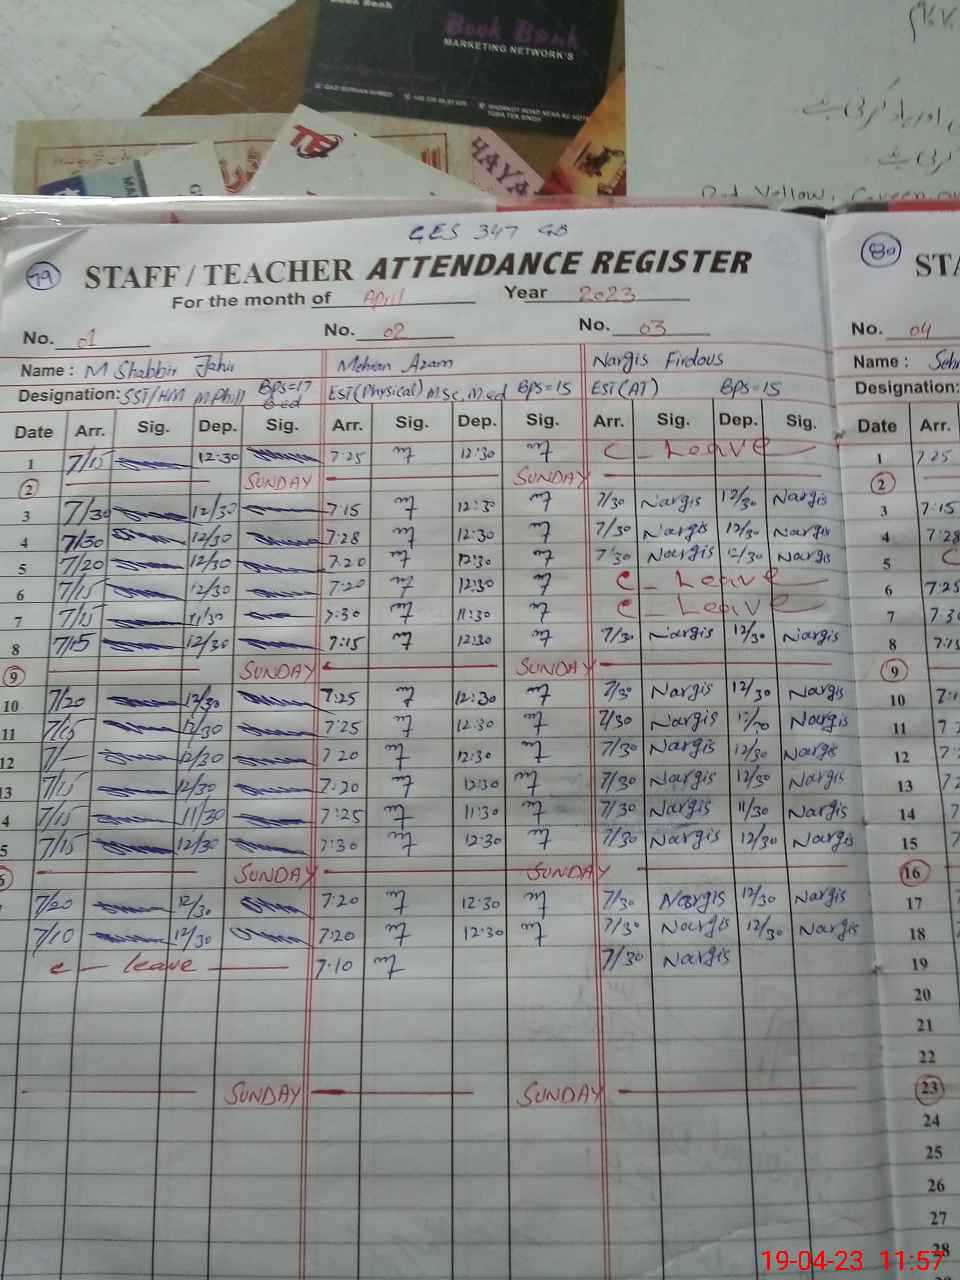 Book Bank
Book Bank
MARKETING NETWORK'S
TE
HAYA
کرتی ہے
Red, Yellow, Green
GES 347 GB
79 STAFF / TEACHER ATTENDANCE REGISTER 80 STA
For the month of April Year 2023
No. 01 No. 02 No. 03 No. 04
Name : M Shabbir Tahir Nargis Firdous Name :
Designation: SST/HM M.Phill B.ed BPS=17 EST(Physical) M.Sc, M.ed BPS=15 EST(AT) BPS=15 Designation:
Date Arr. Sig. Dep. Sig. Arr. Sig. Dep. Sig. Arr. Sig. Dep. Sig. Date Arr.
1 7/15 12:30 7:25 12:30 C - Leave 1 7:25
2 SUNDAY SUNDAY 2
3 7/30 12/30 7:15 12:30 7/30 Nargis 12/30 Nargis 3 7:15
4 7/30 12/30 7:28 12:30 7/30 Nargis 12/30 Nargis 4 7:28
5 7/20 12/30 7:20 12:30 7/30 Nargis 12/30 Nargis 5 C
6 7/15 12/30 7:20 12:30 C - Leave 6 7:25
7 7/15 11/30 7:30 11:30 C - Leave 7 7:3
8 7/15 12/30 7:15 12:30 7/30 Nargis 12/30 Nargis 8 7:15
9 SUNDAY SUNDAY 9
10 7/20 12/30 7:25 12:30 7/30 Nargis 12/30 Nargis 10
11 7/15 12/30 7:25 12:30 7/30 Nargis Nargis 11
12 7/— 12/30 7:20 12:30 7/30 Nargis 12/30 Nargis 12
13 7/15 12/30 7:20 12:30 7/30 Nargis 12/30 Nargis 13
4 7/15 11/30 7:25 11:30 7/30 Nargis 11/30 Nargis 14
5 7/15 12/30 7:30 12:30 7/30 Nargis 12/30 Nargis 15
6 SUNDAY SUNDAY 16
7/20 12/30 7:20 12:30 7/30 Nargis 12/30 Nargis 17
7/10 12/30 7:20 12:30 7/30 Nargis 12/30 Nargis 18
c - leave 7:10 7/30 Nargis 19
20
21
22
SUNDAY SUNDAY 23
24
25
26
27
28
19-04-23 11:57